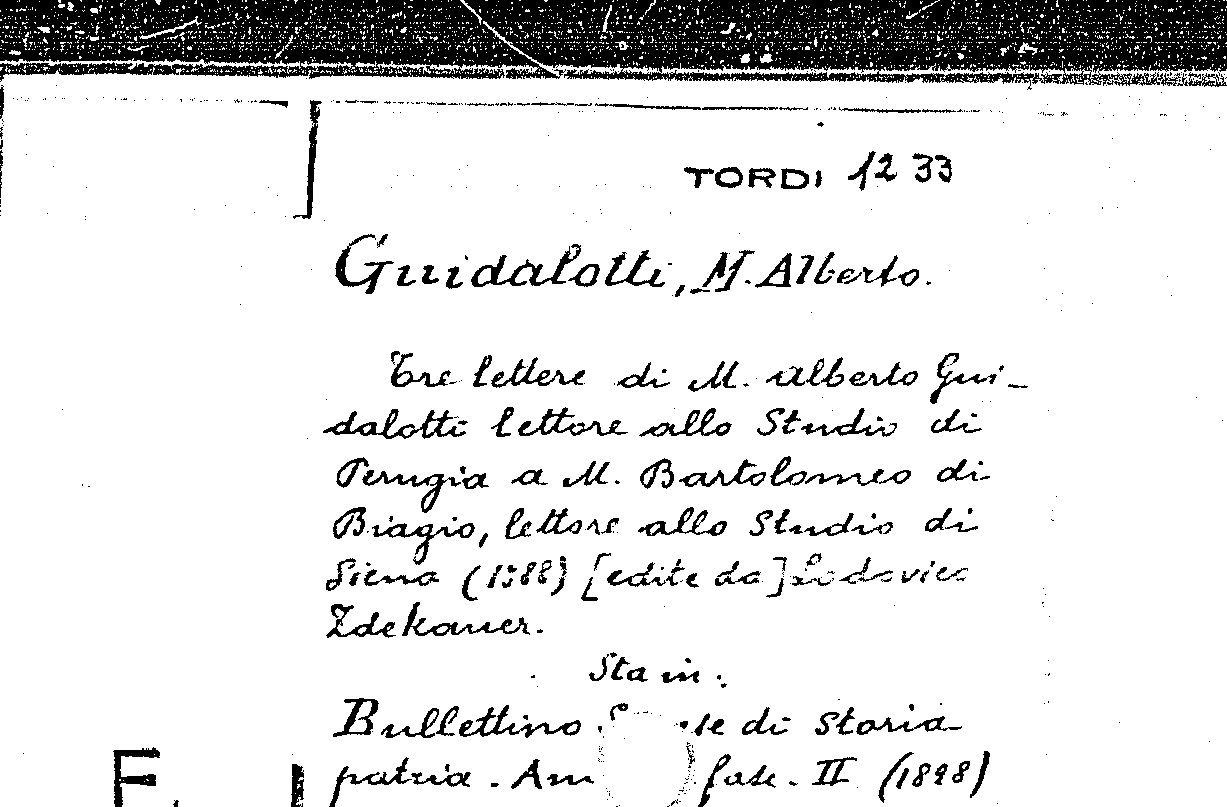 TORDI 12 33
Guidalotti, M. Alberto.
Tre lettere di M. Alberto Gui-
dalotti lettore allo Studio di
Perugia a M. Bartolomeo di
Biagio, lettore allo Studio di
Siena (1388) [edite da] Lodovico
Zdekauer.
Sta in:
Bullettino di Storia
patria. fasc. II (1898)